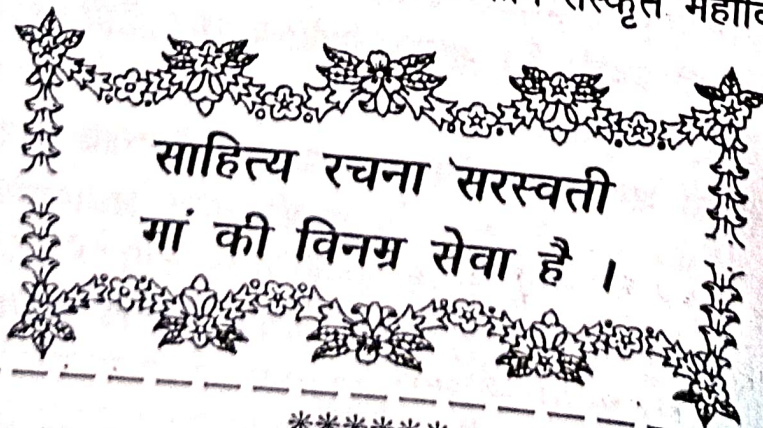 संस्कृत
साहित्य रचना सरस्वती
गां की विनग्र सेवा है ।
*******